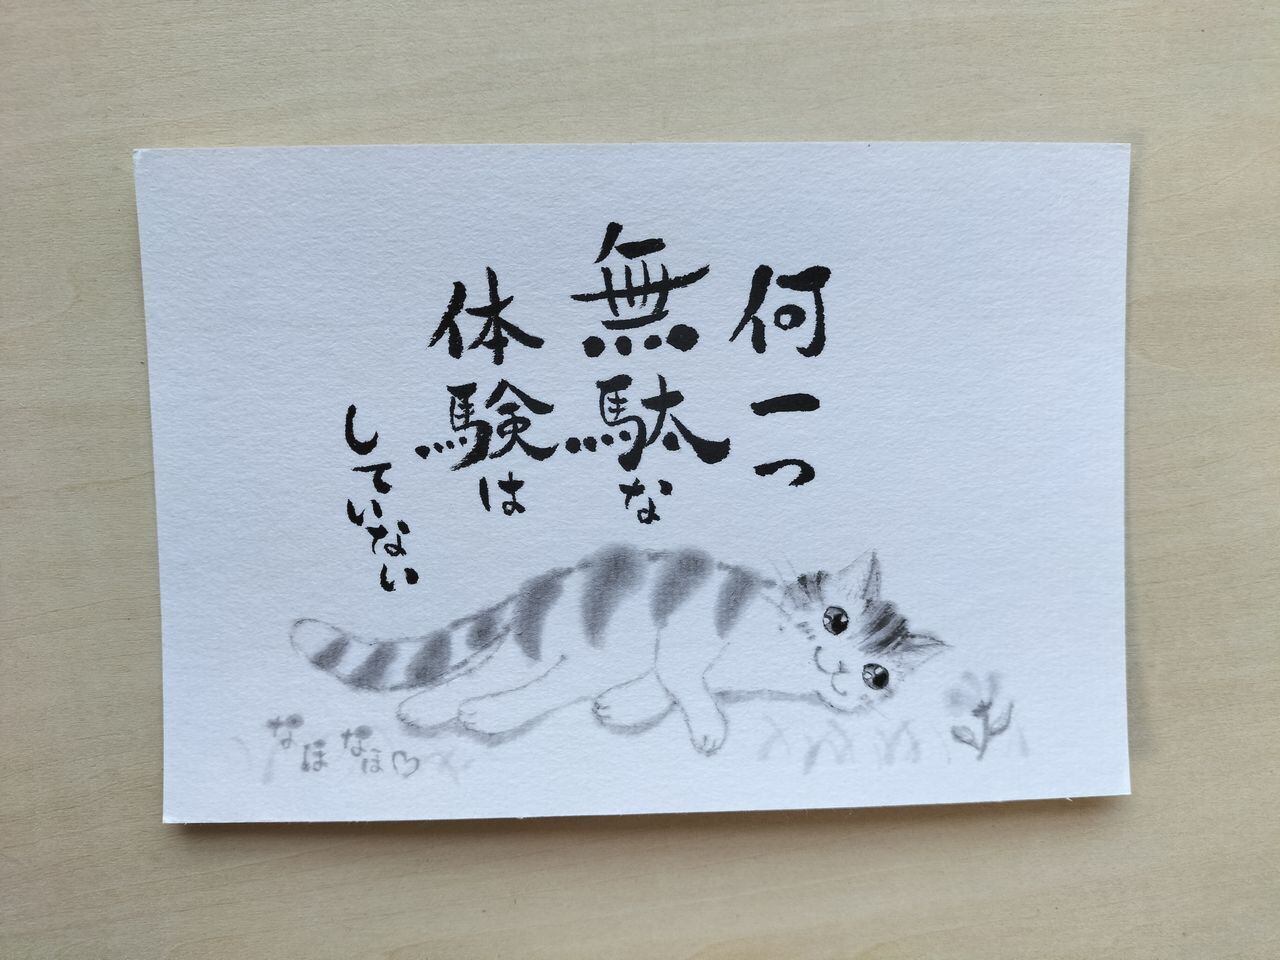 何一つ
無駄な
体験は
していない
なほなほ♡